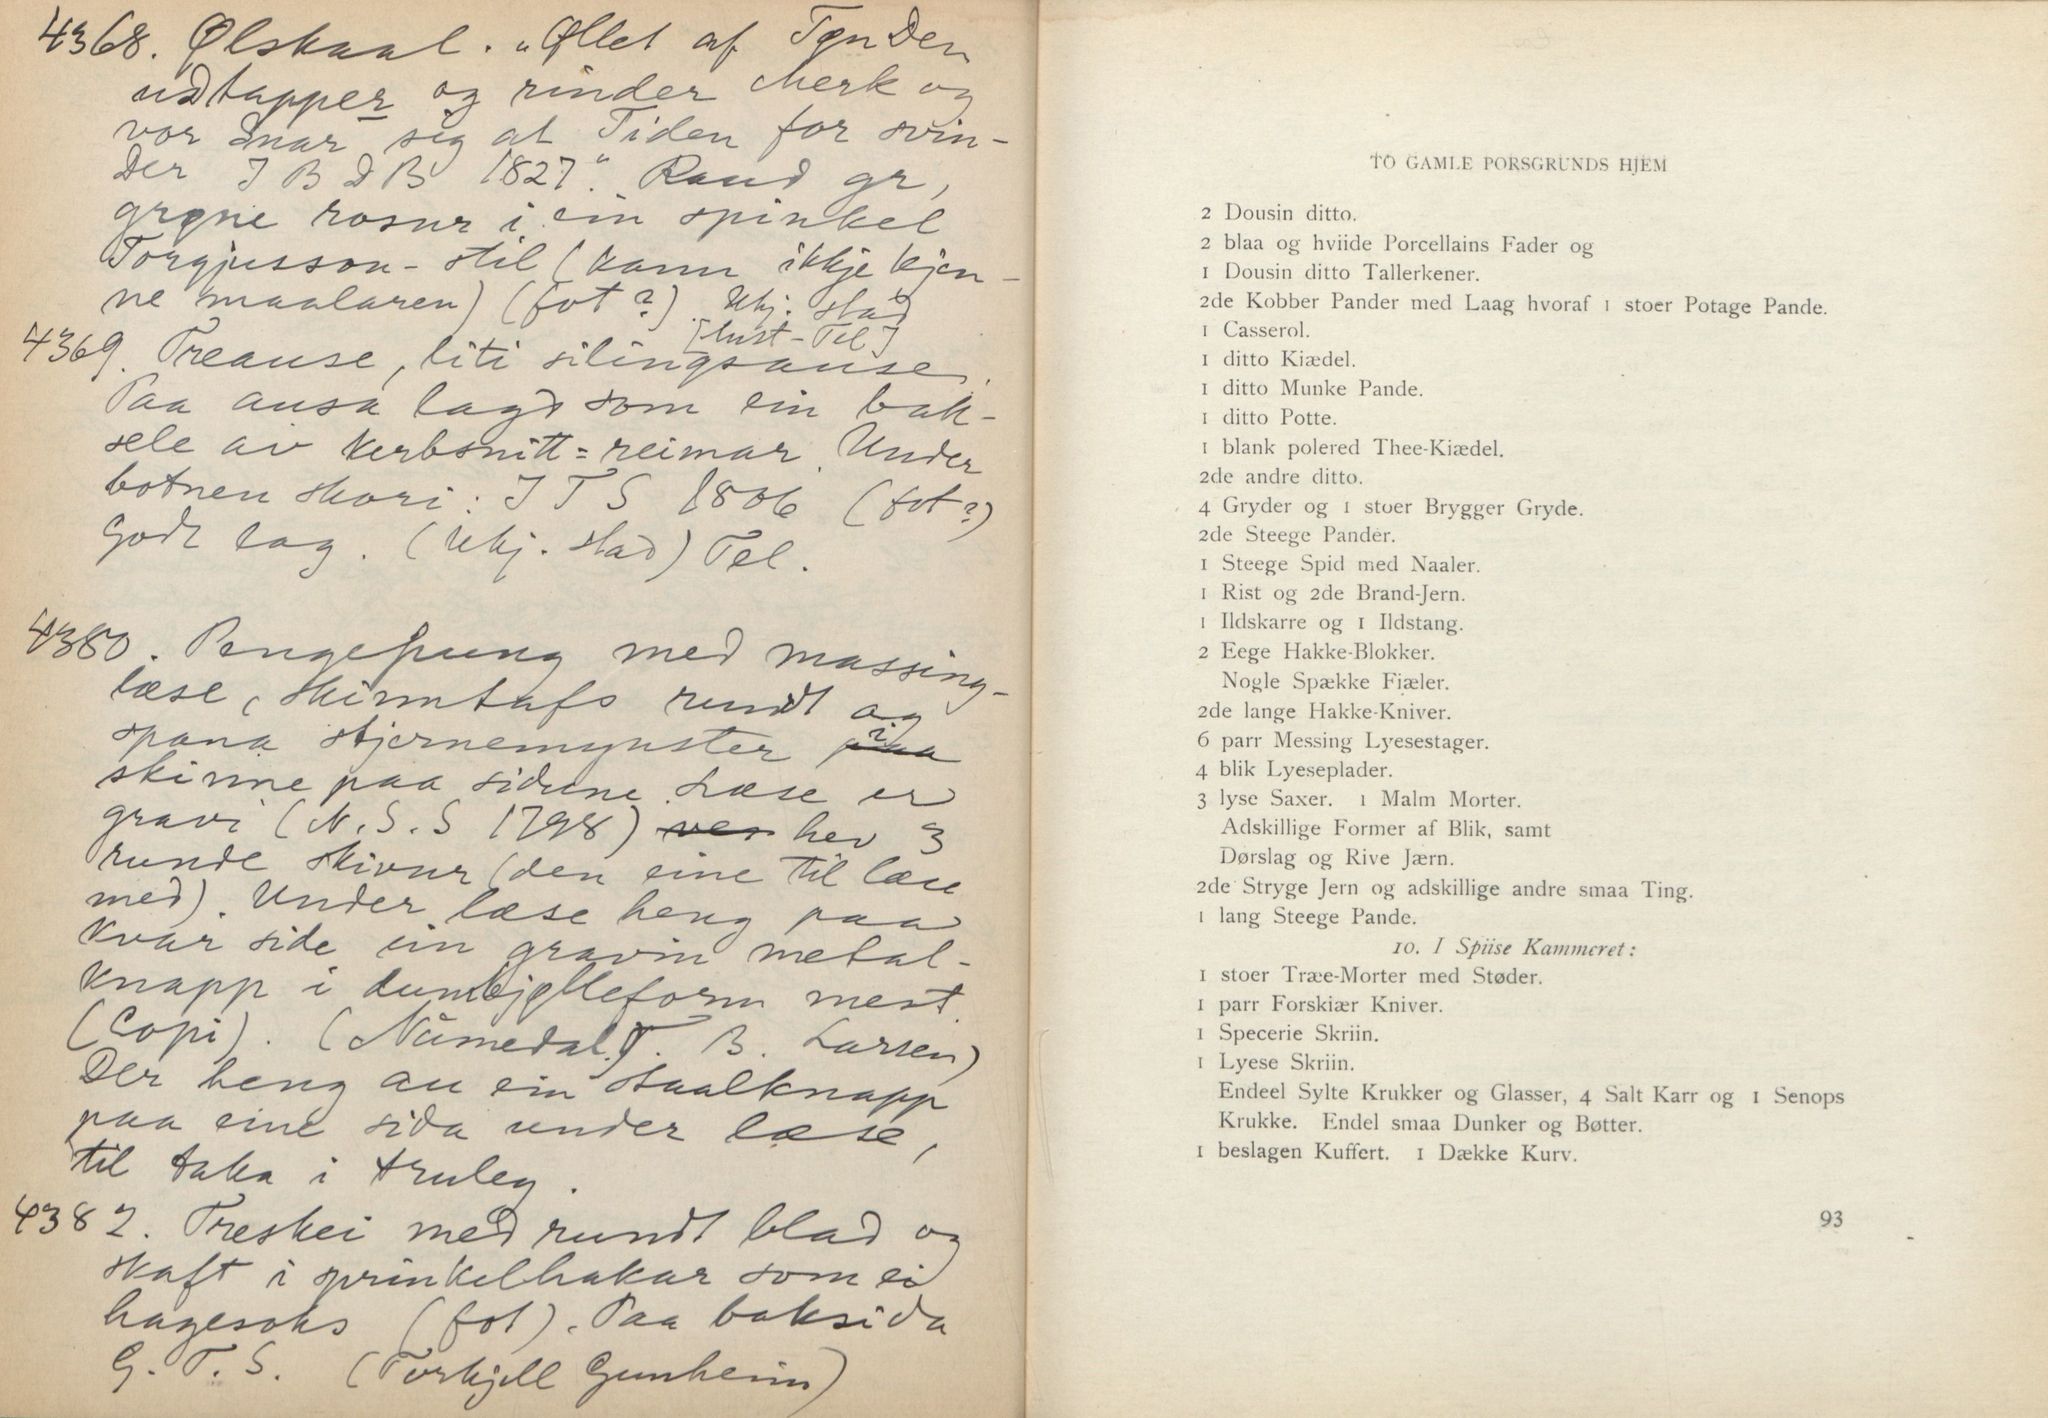 4368. Ølskaal. „Øllet af Tønden
udtapper og rinder Merk og
vor snar sig at Tiden for svin-
der J B D B 1827". Raud gr,
grøne rosur i ein spinkel
Torgjusson-stil (kann ikkje kjen-
ne maalaren) (fot?). Ukj. stad
[Aust-Tel]
4369. Treause, liti silingsause.
Paa ausa lagd som ein bak-
sele av Kerbsnitt=reimar. Under
botnen skori: J T S 1806 (fot?)
Godt lag. (Ukj. stad) Tel.
4380. Pengepung med massing-
læse, skinntafs rundt og
spana stjernemynster i paa
skinne paa sidune. Læse er
gravi (N.S.S 1798) hev 3
runde skivur (den eine til læse
med). Under læse heng paa
kvar side ein gravin metal-
knapp i dumbjølleform mest.
(Copi). (Numedal. T. B. Larsen)
Der heng au ein staalknapp
paa eine sida under læse,
til taka i truleg.
4382. Treskei med rundt blad og
skaft i sprinkelhakar som ei
hagesoks (fot). Paa baksida
G. T. S. (Torkjell Gunheim)
TO GAMLE PORSGRUNDS HJEM
2 Dousin ditto.
2 blaa og hviide Porcellains Fader og
1 Dousin ditto Tallerkener.
2de Kobber Pander med Laag hvoraf 1 stoer Potage Pande.
1 Casserol.
1 ditto Kiædel.
1 ditto Munke Pande.
1 ditto Potte.
1 blank polered Thee-Kiædel.
2de andre ditto.
4 Gryder og 1 stoer Brygger Gryde.
2de Steege Pander.
1 Steege Spid med Naaler.
1 Rist og 2de Brand-Jern.
1 Ildskarre og 1 Ildstang.
2 Eege Hakke-Blokker.
Nogle Spække Fiæler.
2de lange Hakke-Kniver.
6 parr Messing Lyesestager.
4 blik Lyeseplader.
3 lyse Saxer. 1 Malm Morter.
Adskillige Former af Blik, samt
Dørslag og Rive Jærn.
2de Stryge Jern og adskillige andre smaa Ting.
1 lang Steege Pande.
10. I Spiise Kammeret:
1 stoer Træe-Morter med Støder.
1 parr Forskiær Kniver.
1 Specerie Skriin.
1 Lyese Skriin.
Endeel Sylte Krukker og Glasser, 4 Salt Karr og 1 Senops
Krukke. Endel smaa Dunker og Bøtter.
1 beslagen Kuffert. 1 Dække Kurv.
93